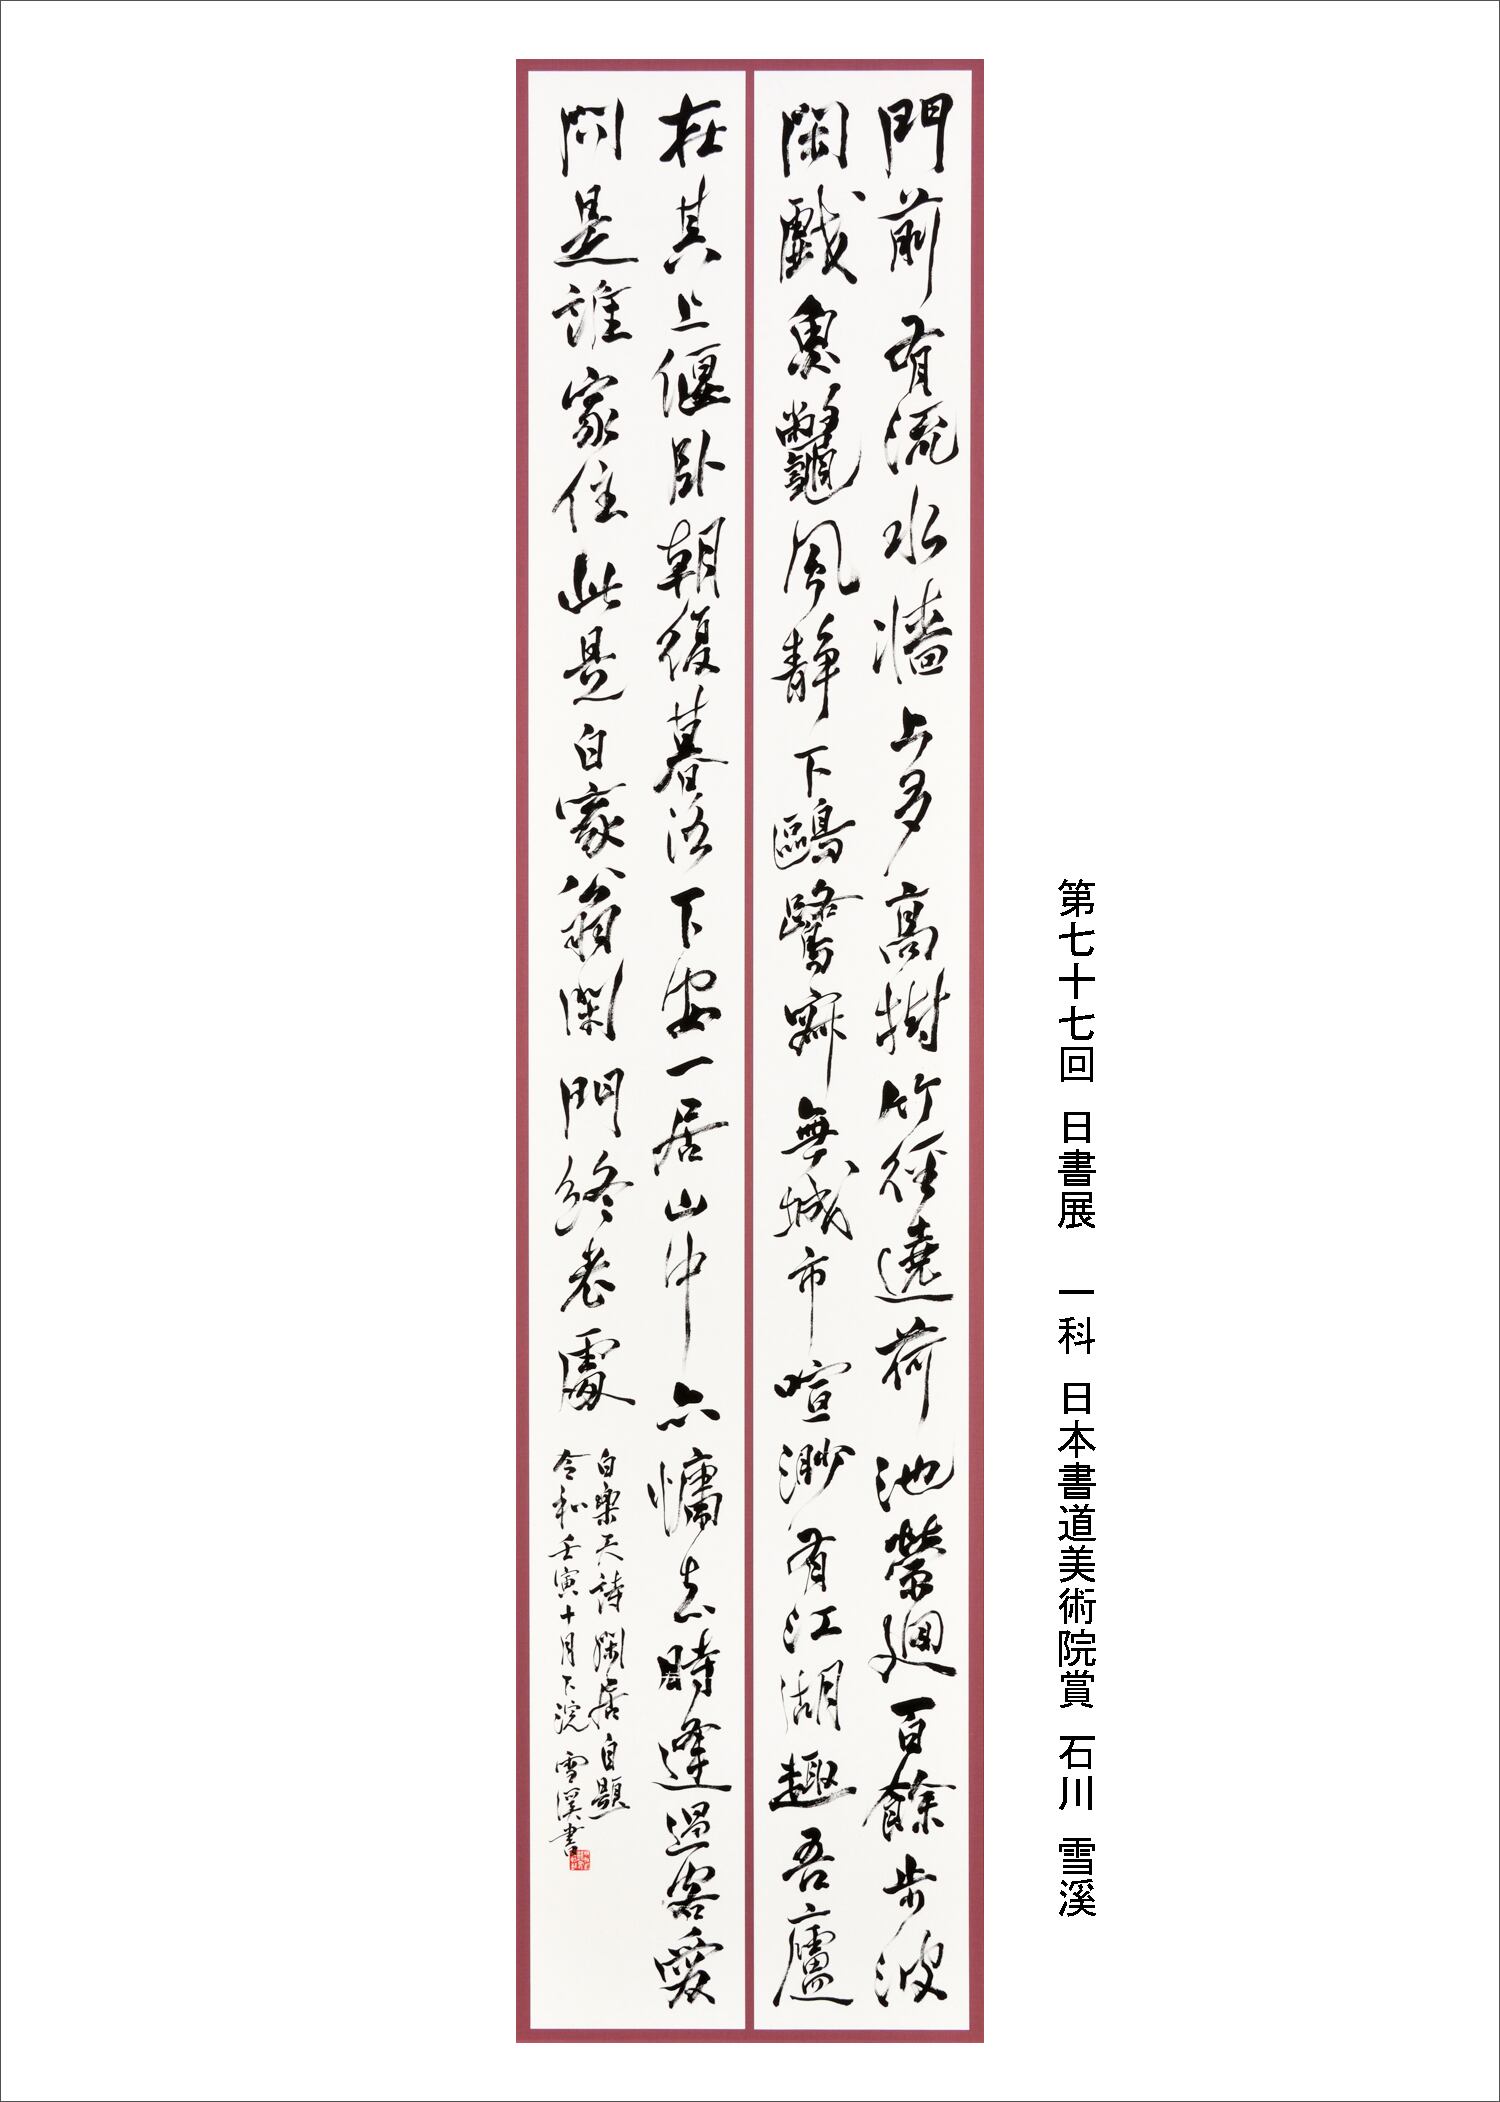 第七十七回 日書展 一科 日本書道美術院賞 石川 雪溪
門前有流水牆上多高樹竹徑遶荷池縈廻百餘步波
閑戲魚鼈風靜下鷗鷺寂無城市喧渺有江湖趣吾廬
在其上偃臥朝復暮洛下安一居山中亦慵去時逢過客愛
問是誰家住此是白家翁閑門終老處
白樂天詩閑居自題
令和壬寅十月下浣 雪溪書